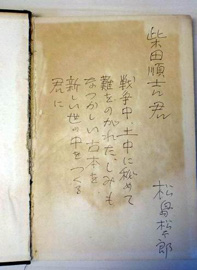 柴田順吉君
戦争中、土中に秘めて
難をのがれた、しみも
なつかしい古本を、
新しい世の中をつくる
君に
松島松太郎